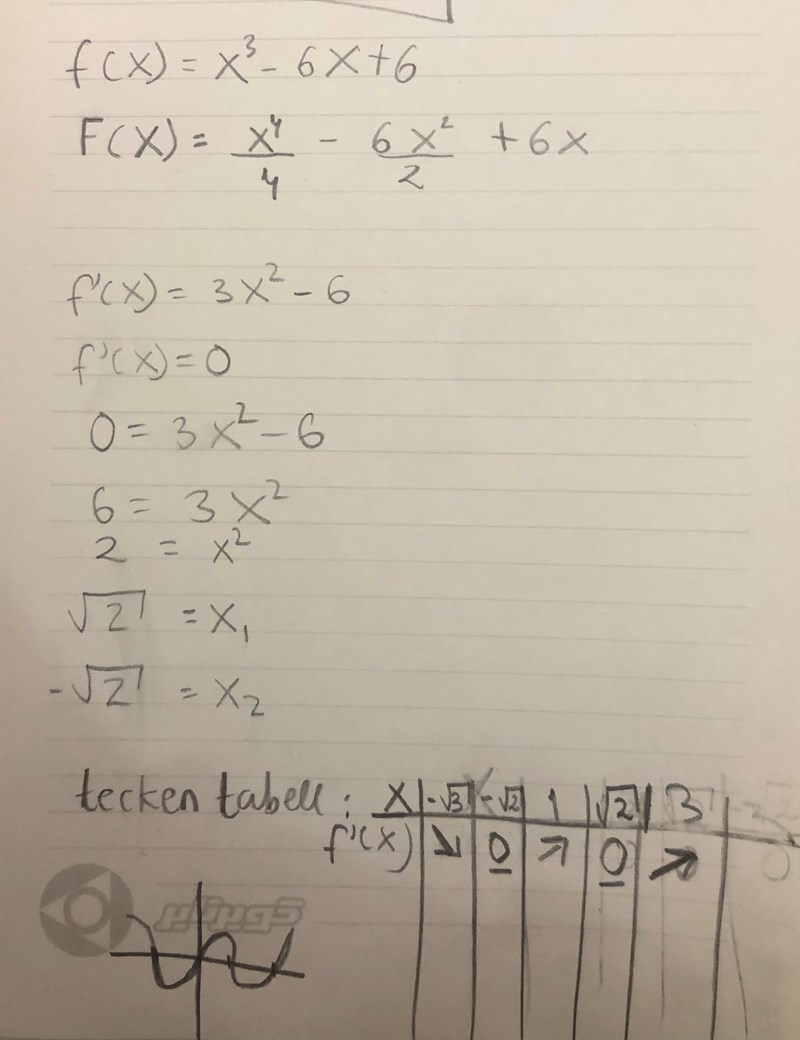 f(x) = x³ - 6x + 6
F(x) = x⁴/4 - 6x²/2 + 6x
f'(x) = 3x² - 6
f'(x) = 0
0 = 3x² - 6
6 = 3x²
2 = x²
√2 = x₁
-√2 = x₂
tecken tabell : x | -√3 | -√2 | 1 | √2 | 3 |
f'(x) | ↘ | 0 | ↗ | 0 | ↗ |